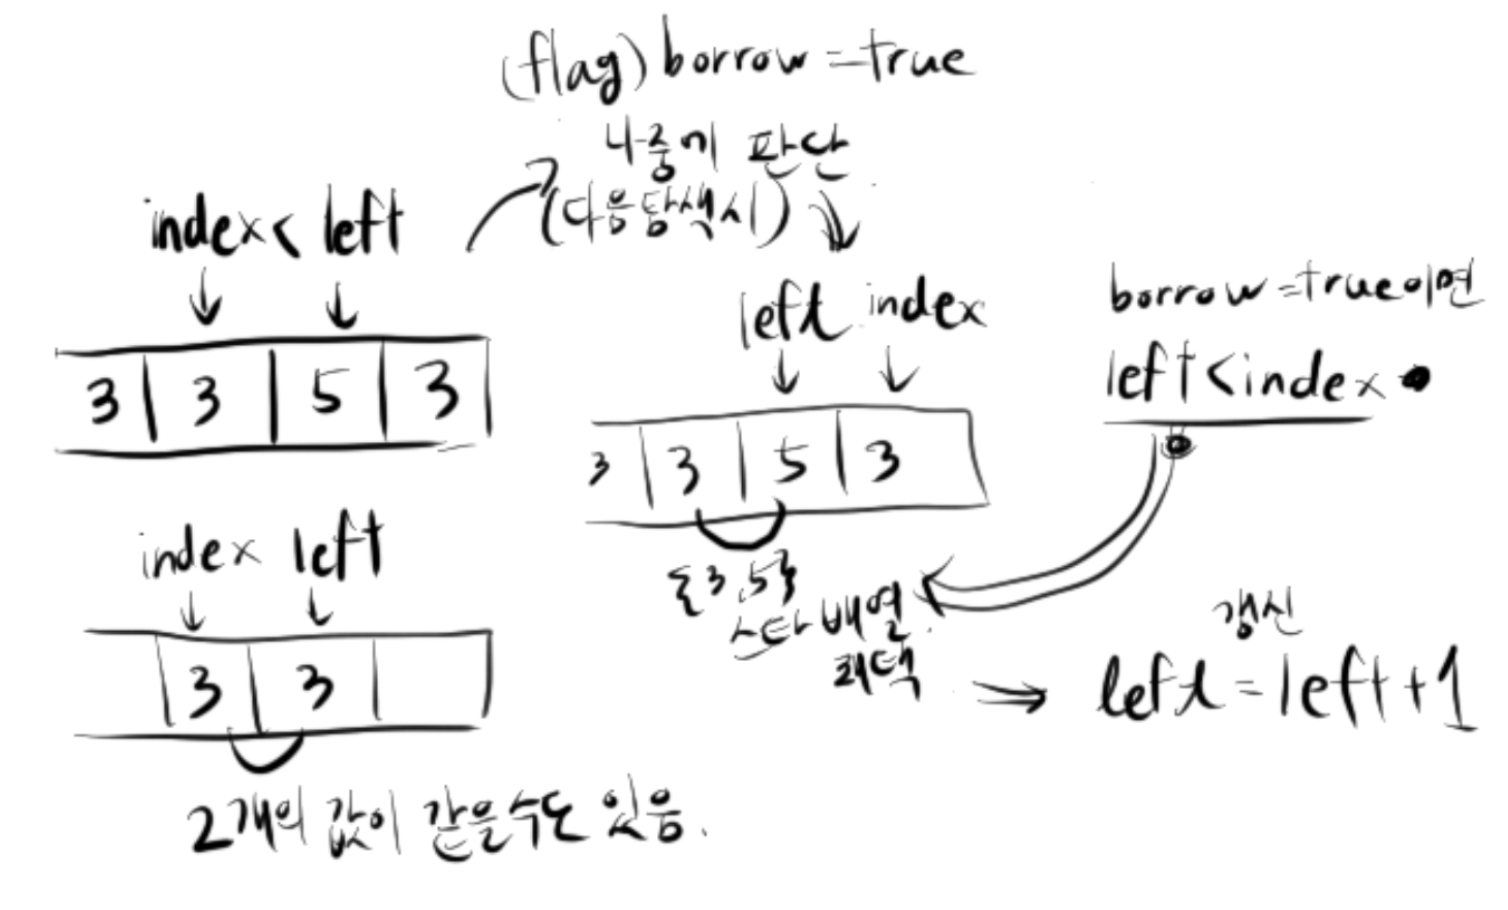 (flag) borrow = true
나중에 판단
(다음탐색시)
index < left
3 3 5 3
index left
3 3
2개의 값이 같을수도 있음.
left index
3 3 5 3
{3,5}
스타 배열
채택
borrow = true이면
left < index
갱신
left = left + 1